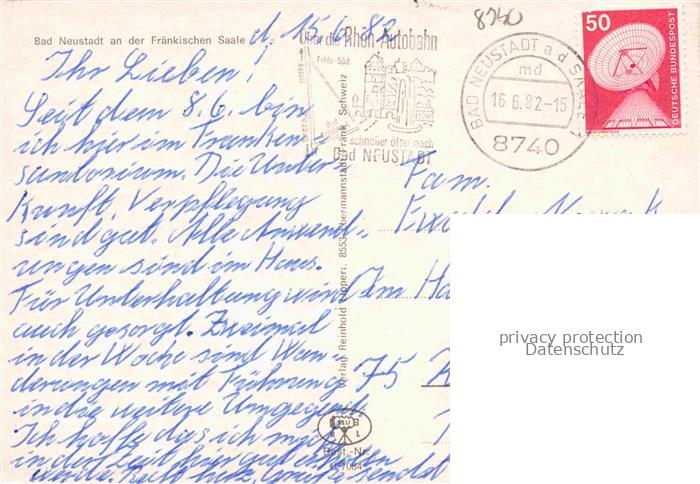 Bad Neustadt an der Fränkischen Saale
d. 15.6.82
Ihr Lieben,
Seit dem 8.6. bin
ich hier im Franken
sanatorium. Die Unter-
kunft, Verpflegung
sind gut. Alle Anwend-
ungen sind im Haus.
Für Unterhaltung wird
auch gesorgt. Zweimal
in der Woche sind Wan-
derungen mit Führung
in die weitere Umgegend.
Ich hoffe das ich mich
in der Zeit hier gut erholen
werde. Recht herz. Grüße sendet
Über die Rhön-Autobahn
Fulda-Süd
schneller öfter nach
Bad NEUSTADT
8740
BAD NEUSTADT a d SAALE 1
md
16.6.82-15
8740
50
DEUTSCHE BUNDESPOST
Fam.
Im
75
Verlag Reinhold 8553 Ebermannstadt Fränk. Schweiz
Best.-Nr.
privacy protection
Datenschutz